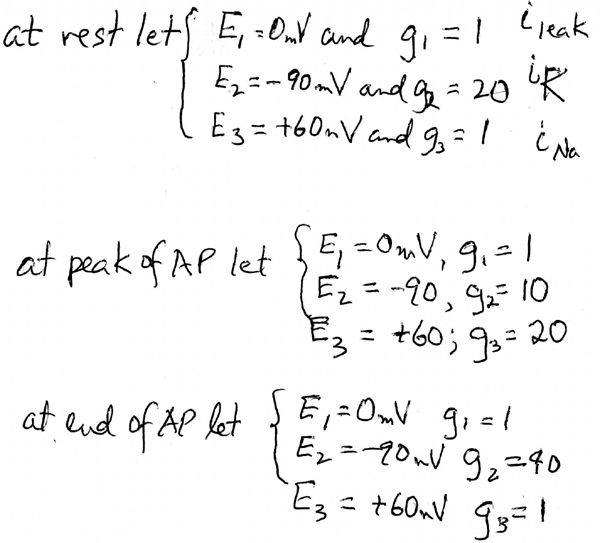 at rest let { E₁ = 0mV and g₁ = 1 i leak
E₂ = -90mV and g₂ = 20 iK
E₃ = +60mV and g₃ = 1 i Na
at peak of AP let { E₁ = 0mV, g₁ = 1
E₂ = -90, g₂ = 10
E₃ = +60; g₃ = 20
at end of AP let { E₁ = 0mV g₁ = 1
E₂ = -90mV g₂ = 40
E₃ = +60mV g₃ = 1